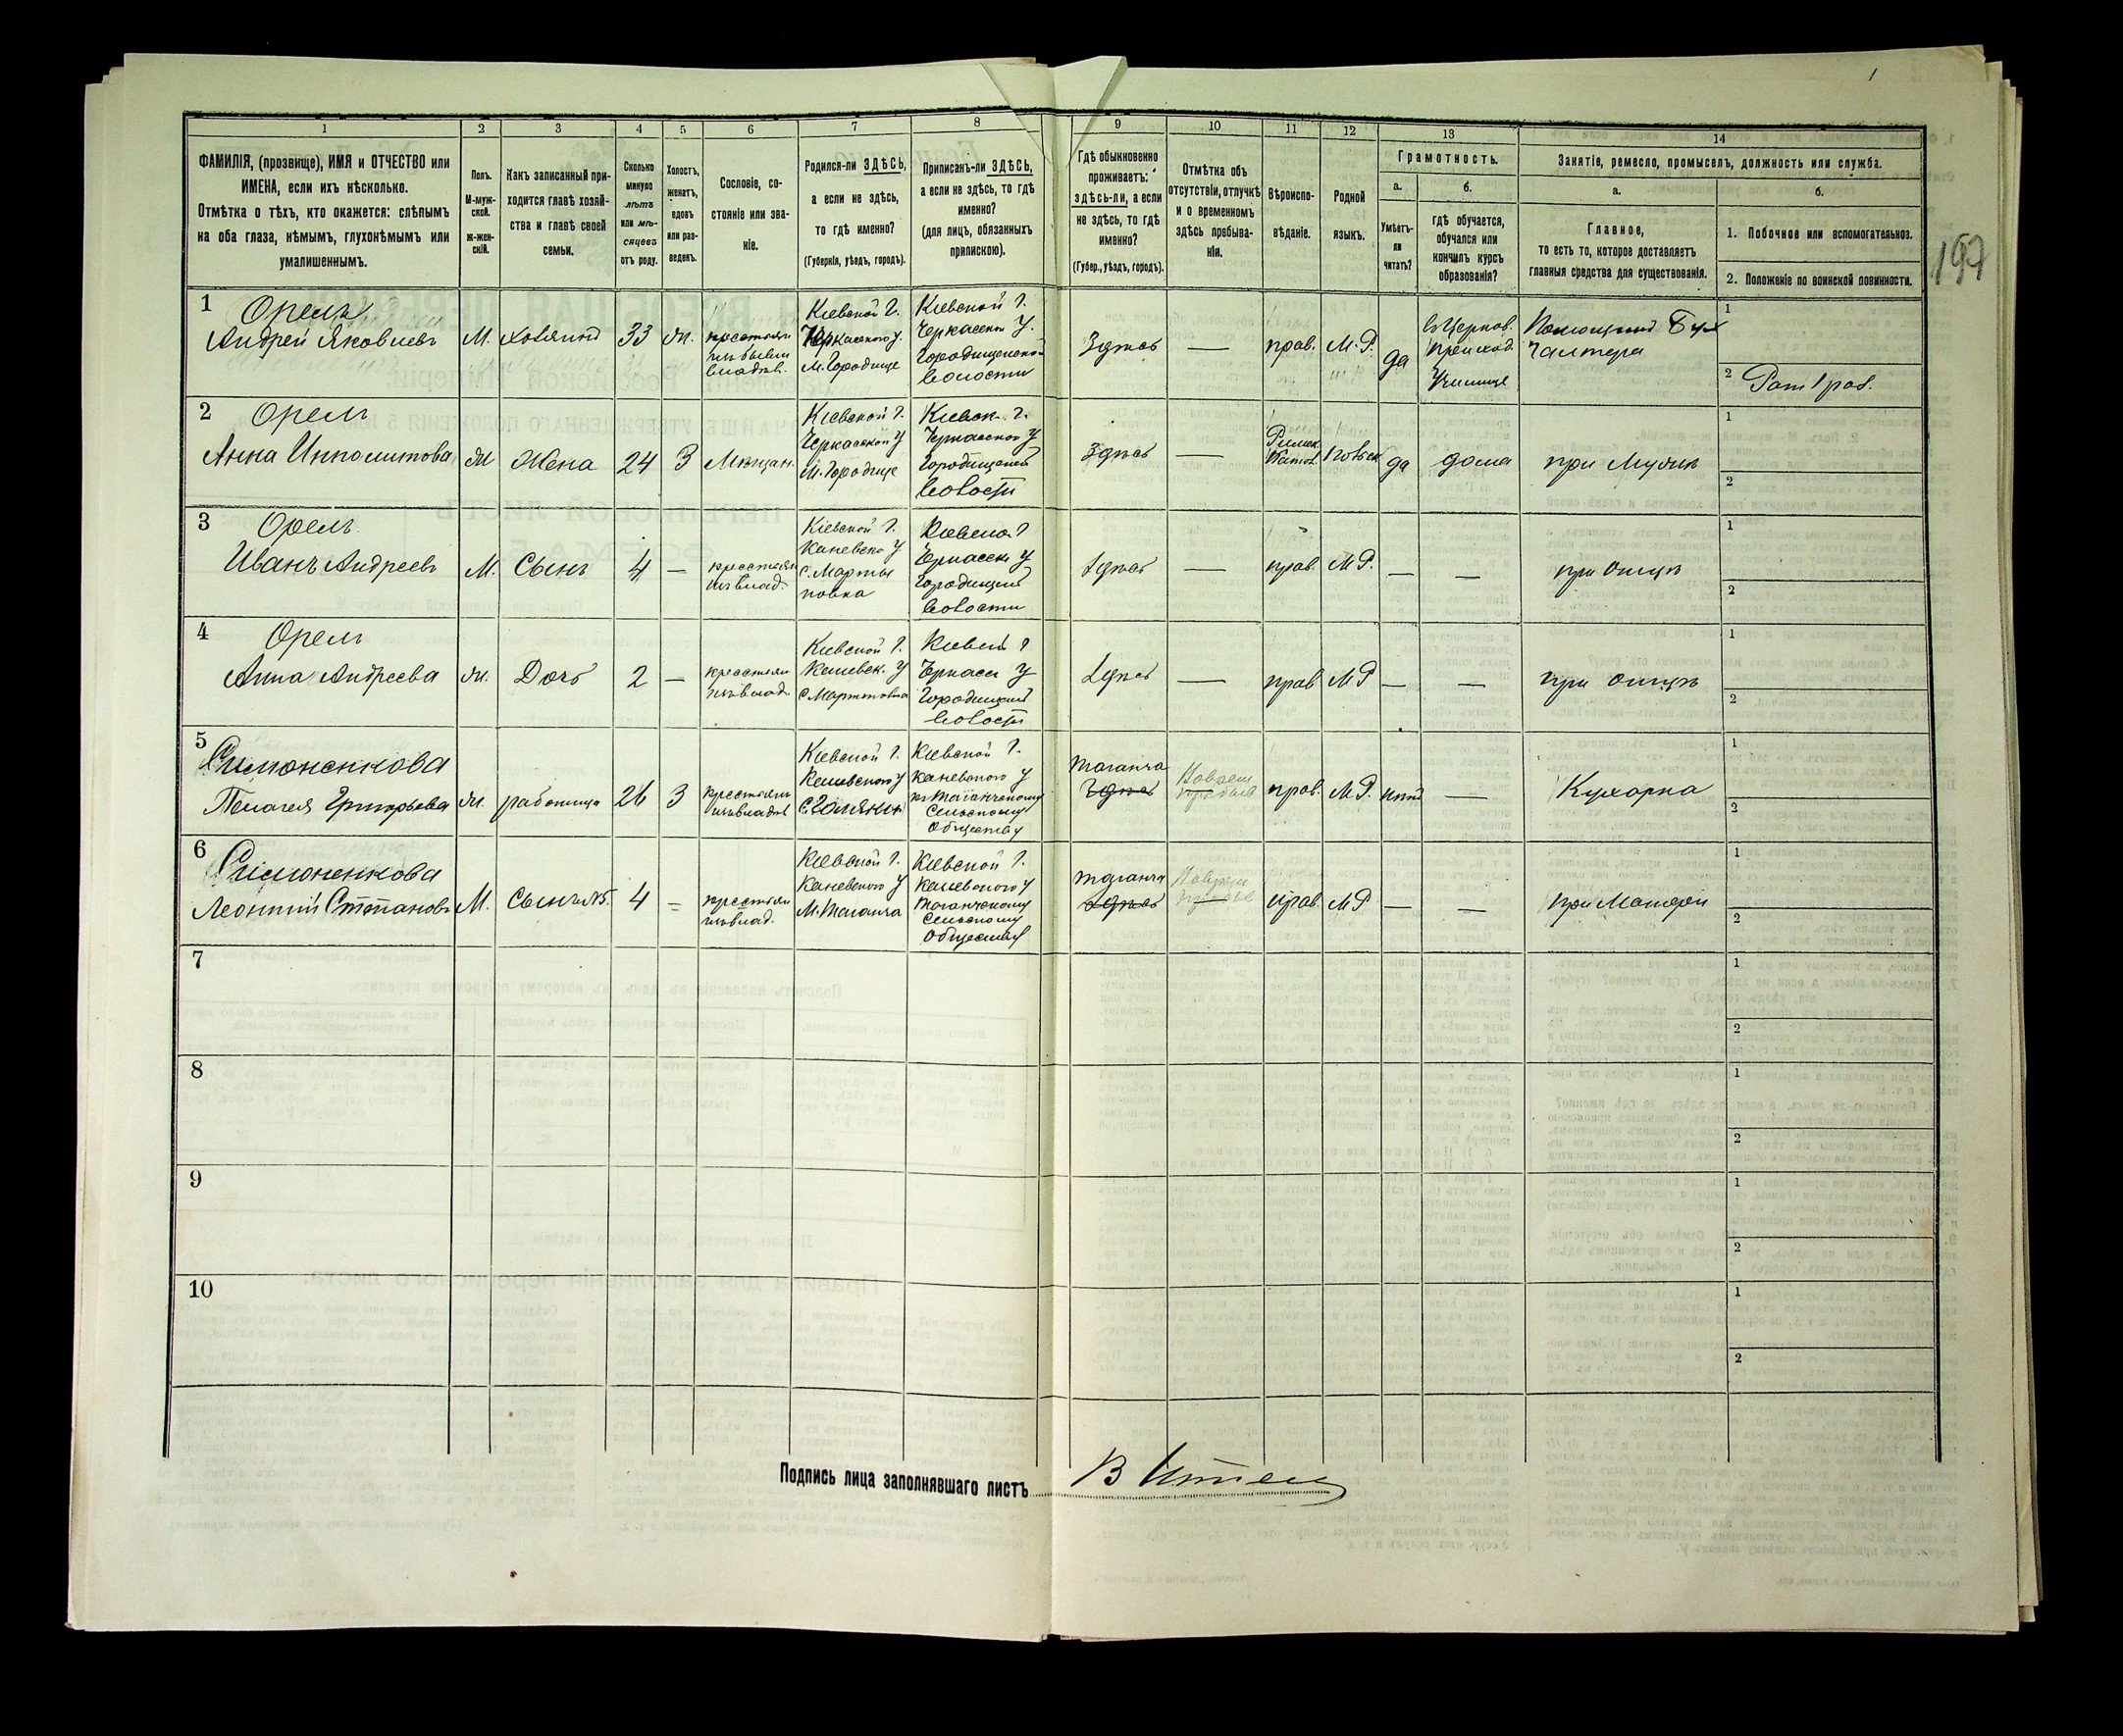 1
197
1
2
3
4
5
6
7
8
9
10
11
12
13
14
ФАМИЛІЯ, (прозвище), ИМЯ и ОТЧЕСТВО или
ИМЕНА, если ихъ нѣсколько.
Отмѣтка о тѣхъ, кто окажется: слѣпымъ
на оба глаза, нѣмымъ, глухонѣмымъ или
умалишеннымъ.
Полъ.
М-муж-
ской.
Ж-жен-
скій.
Какъ записанный при-
ходится главѣ хозяй-
ства и главѣ своей
семьи.
Сколько
минуло
лѣтъ
или мѣ-
сяцевъ
отъ роду.
Холостъ,
женатъ,
вдовъ
или раз-
веденъ.
Сословіе, со-
стояніе или зва-
ніе.
Родился-ли ЗДѢСЬ,
а если не здѣсь,
то гдѣ именно?
(Губернія, уѣздъ, городъ).
Приписанъ-ли ЗДѢСЬ,
а если не здѣсь, то гдѣ
именно?
(для лицъ, обязанныхъ
припискою).
Гдѣ обыкновенно
проживаетъ:
здѣсь-ли, а если
не здѣсь, то гдѣ
именно?
(Губер., уѣздъ, городъ).
Отмѣтка объ
отсутствіи, отлучкѣ
и о временномъ
здѣсь пребыва-
ніи.
Вѣроиспо-
вѣданіе.
Родной
языкъ.
Грамотность.
а.
Умѣетъ-
ли
читать?
б.
гдѣ обучается,
обучался или
кончилъ курсъ
образованія?
Занятіе, ремесло, промыселъ, должность или служба.
а.
Главное,
то есть то, которое доставляетъ
главныя средства для существованія.
б.
1. Побочное или вспомогательное.
2. Положеніе по воинской повинности.
1
Орелъ
Андрей Яковлевъ
М.
хозяинъ
33
ж.
крестьян
изъ бывш
владѣл.
Кіевской г.
Черкасского у.
м. Городище
Кіевской г.
Черкасскаго у.
Городищенской
волости
Здѣсь
—
прав.
М.Р.
да
Въ Церков.
приход.
Училище
Помощникъ Бух
галтера
1
2
Рат 1 раз.
2
Орелъ
Анна Ипполитова
ж
Жена
24
З
Мѣщан.
Кіевской г.
Черкасской у
м. Городище
Кіевск. г.
Черкасской у
Городищенск
волости
Здѣсь
—
Римск
Катол.
да
дома
при Мужѣ
1
2
3
Орелъ
Иванъ Андреевъ
М.
Сынъ
4
—
крестьян
изъ влад.
Кіевской г.
Каневск у
с. Марты
новка
Кіевской г
Черкасск у
Городищен
волости
Здѣсь
—
прав.
М.Р.
—
—
при Отцѣ
1
2
4
Орелъ
Анна Андреева
ж.
Дочь
2
—
крестьян
изъ влад.
Кіевской г.
Каневск. у
с Мартыновка
Кіевск г
Черкасс у
Городищен
волости
Здѣсь
—
прав
М Р
—
—
при отцѣ
1
2
5
Симоненкова
Пелагея Григорьева
ж.
работница
26
З
крестьян
изъ владѣл
Кіевской г.
Каневского у
Кіевской г.
Каневского у
къ Таганчскому
Сельскому
Обществу
Таганча
Здѣсь
—
прав.
М.Р.
нѣтъ
—
Кухарка
1
2
6
Симоненкова
Леонтій Степановъ
М.
Сынъ
4
крестьян
изъ влад.
Кіевской г.
Каневского у
м. Таганча
Кіевской г.
Каневского у
Таганчскому
Сельскому
Обществу
Таганча
Здѣсь
—
прав.
М Р
—
—
при Матери
1
2
7
1
2
8
1
2
9
1
2
10
1
2
Подпись лица заполнявшаго листъ